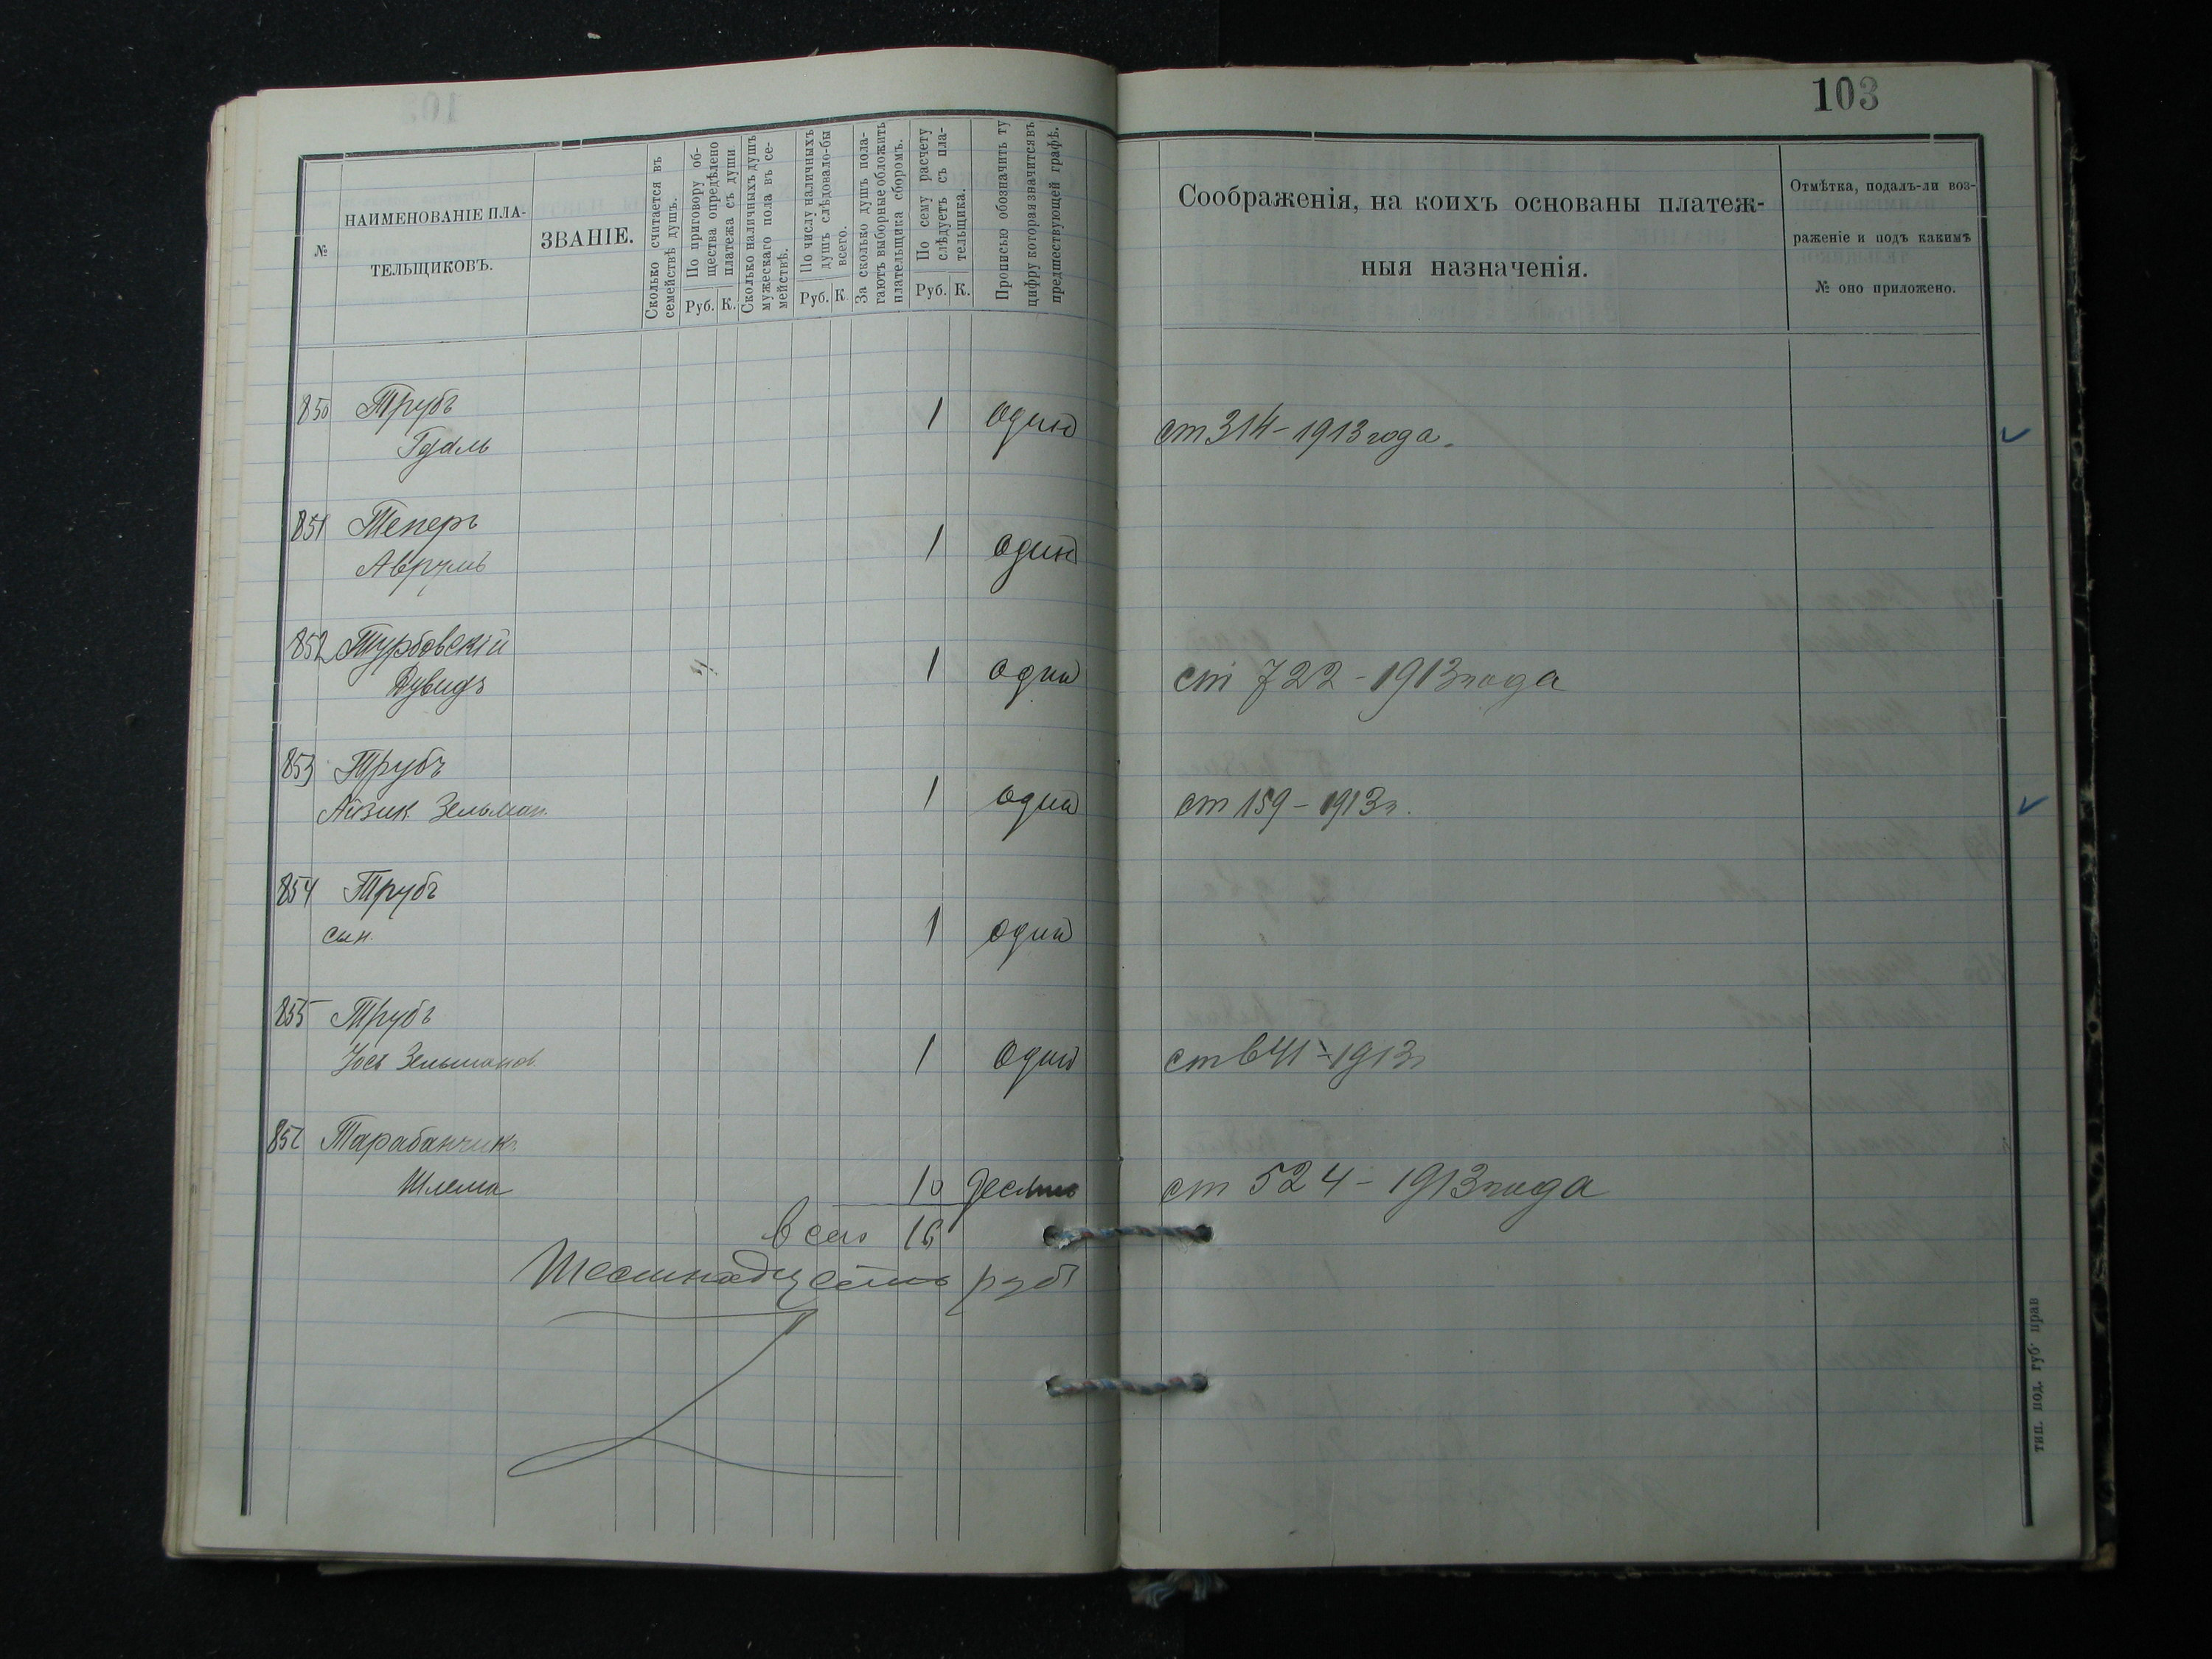 103
№
НАИМЕНОВАНІЕ ПЛА-
ТЕЛЬЩИКОВЪ.
ЗВАНІЕ.
Сколько считается въ
семействѣ душъ.
По приговору об-
щества опредѣлено
платежа съ души
Руб. К.
Сколько наличныхъ душъ
мужескаго пола въ се-
мействѣ.
По числу наличныхъ
душъ слѣдовало-бы
всего.
Руб. К
За сколько душъ пола-
гаютъ выборные обложить
плательщика сборомъ.
По сему расчету
слѣдуетъ съ пла-
тельщика.
Руб. К.
Прописью обозначить ту
цифру которая значится въ
предшествующей графѣ.
Соображенія, на коихъ основаны платеж-
ныя назначенія.
Отмѣтка, подалъ-ли воз-
раженіе и подъ какимъ
№ оно приложено.
850 Трубъ
Гдаль 1 один ст 314 - 1913 года.
851 Теперъ
Аврумъ 1 один
852 Турбовскій
Дувидъ 1 один ст 722 - 1913 года
853 Трубъ
Айзик Зельман. 1 один ст 159 - 1913 г.
854 Трубъ
сын. 1 один
855 Трубъ
Зельманов 1 один ст 641 - 1913 г
Тарабанчикъ
Шлема 10 десять ст 524 - 1913 года
всего 16
Шестнадцать руб
тип. под. губ. прав